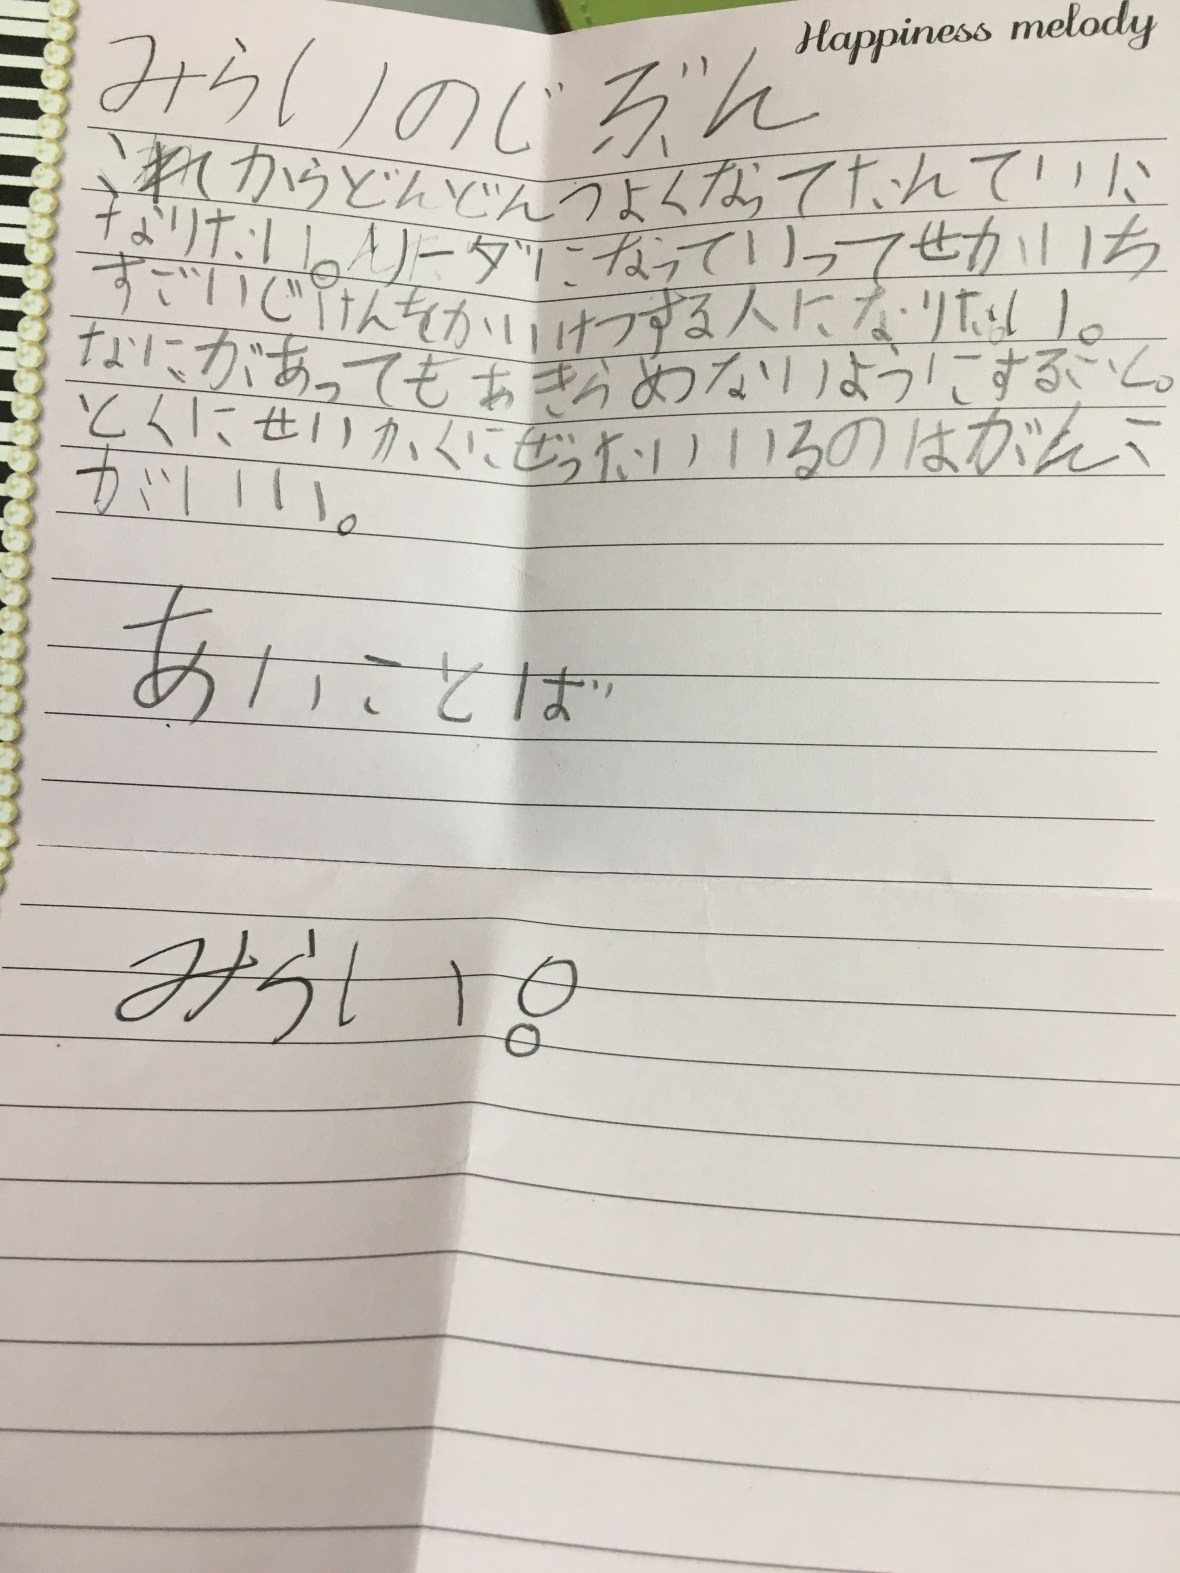 Happiness melody
みらいのじぶん
これからどんどんつよくなってたんていに
なりたい。リーダーになっていってせかいいち
すごいじけんをかいけつする人になりたい。
なにがあってもあきらめないようにすること。
とくにせいかくにぜったいいるのはがんこ
がいい。
あいことば
みらい。